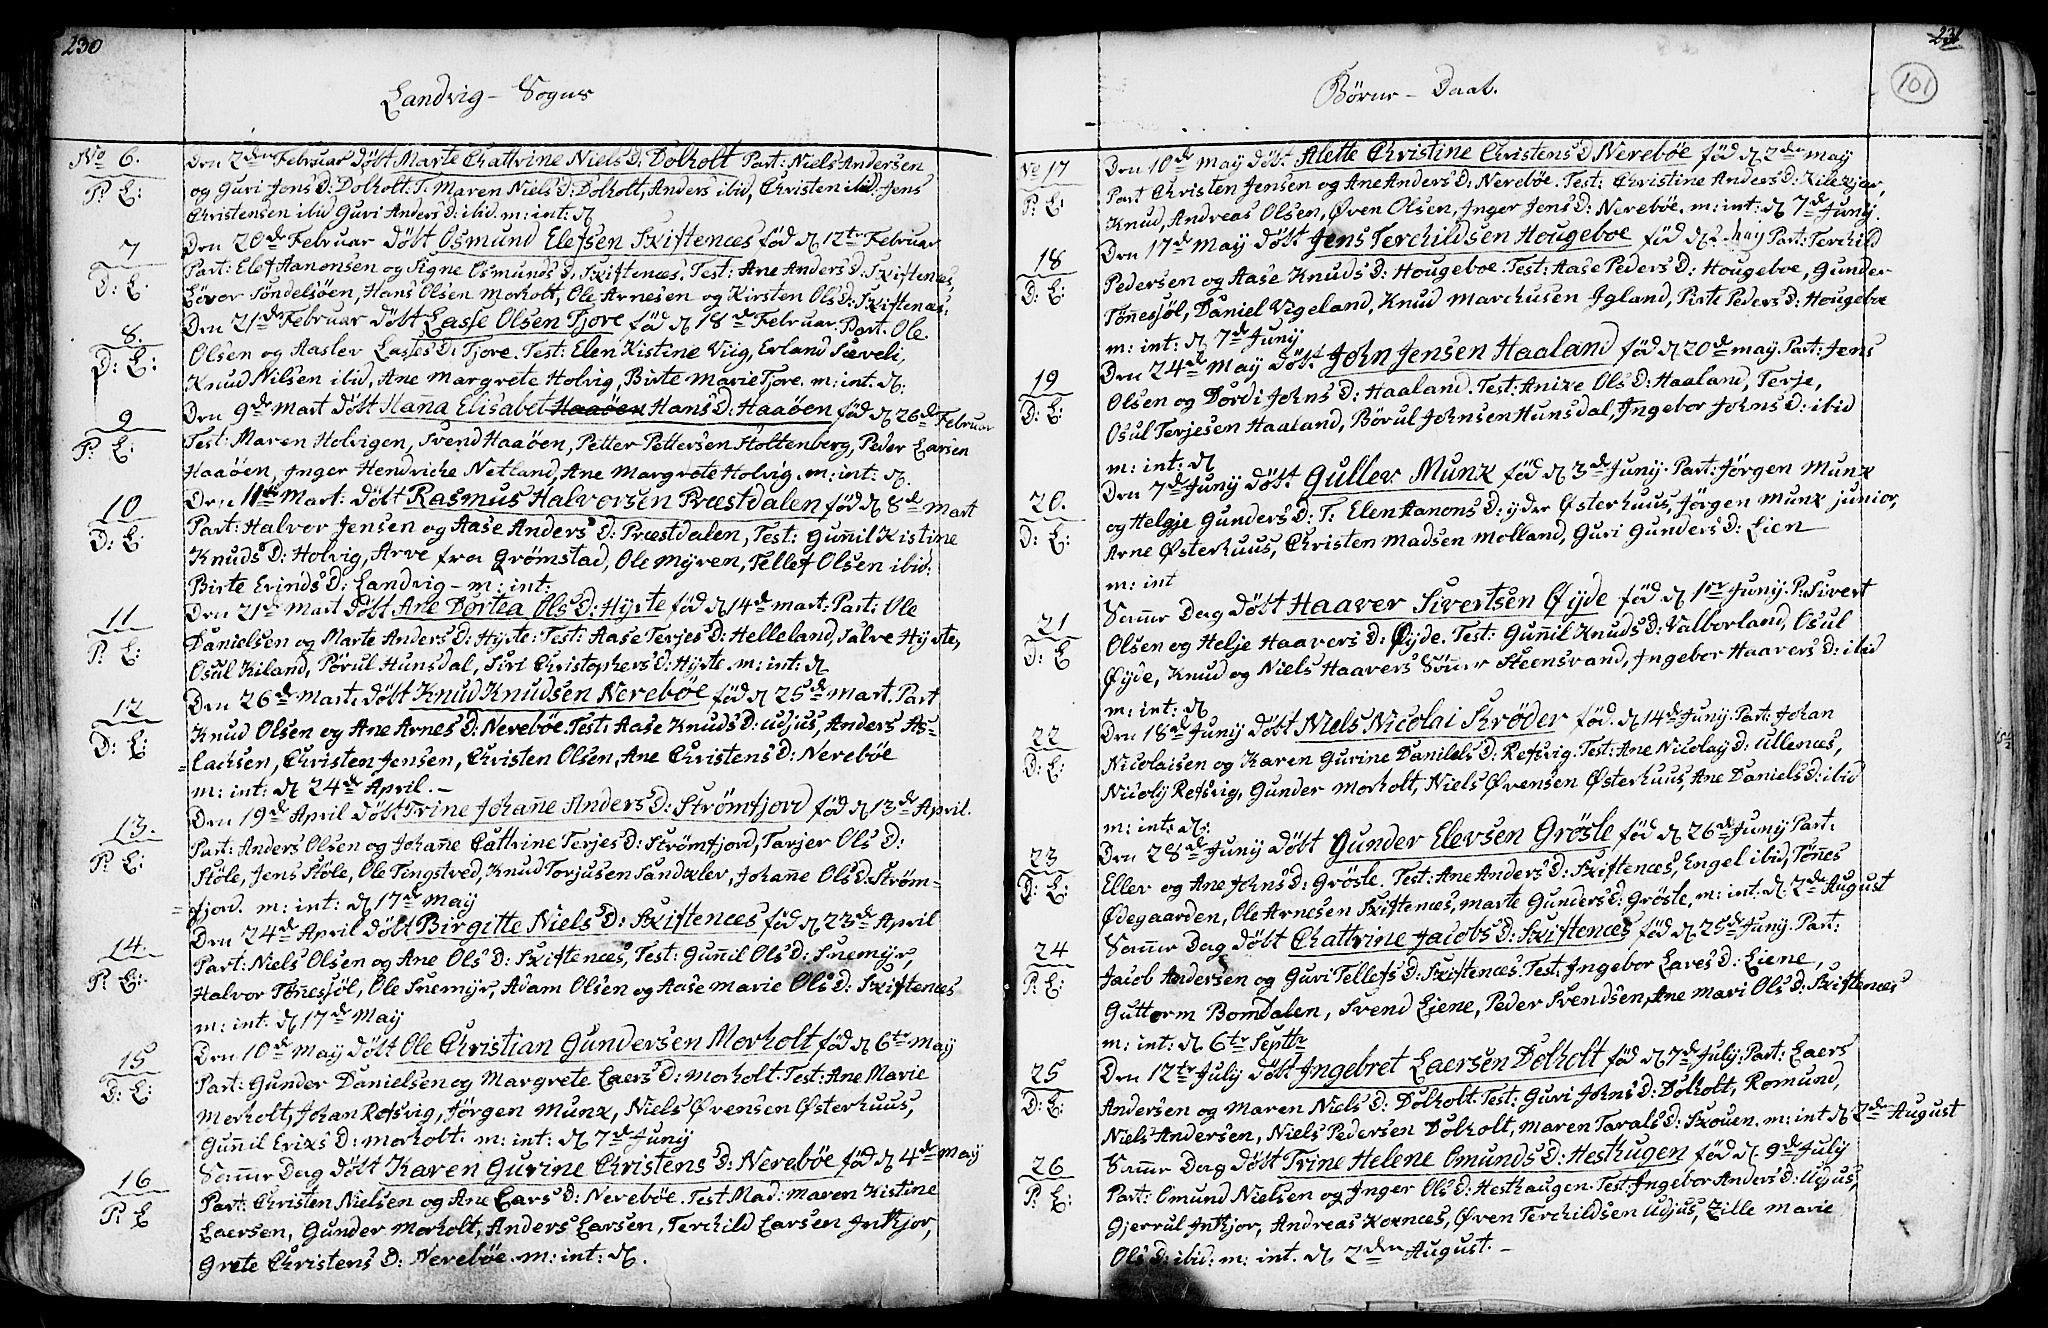 230
Landvig - Sogns
No 6.
Den 2den Februar døbt Marte Chattrine Niels D: Dolholt Part: Niels Andersen
P: E:
og Guri Jens D: Dolholt. T: Maren Niels D: Dolholt, Anders ibid, Christen ibid: Jens
Christensen ibid Guri Anders D: ibid. m: int: d
7
Den 20de Februar døbt Osmund Elefsen Skiftenes fød d 12te Februar
D: E:
Part: Elef Aanonsen og Signe Osmunds D: Skiftenes. Test: Ane Anders D: Skiftenes,
Løvor Tøndelsöen, Hans Olsen Morholt, Ole Arnesen og Kirsten Ols D: Skiftenes:
8.
Den 21de Februar døbt Lasse Olsen Fjore fød d 18de Februar. Part. Ole
D: E:
Olsen og Aaslev Lasses D: Fjore. Test: Elen Kistine Viig, Erland Sæveli,
Knud Nilsen ibid, Ane Margrete Holvig, Birte Marie Fjore. m: int: d:
9
Den 9de Mart døbt Hanna Elisabet Haaöen Hans D: Haaöen fød d 26de Februar
P: E:
Test: Maren Holvigen, Svend Haaöen, Petter Pettersen Stoltenberg, Peder Larsen
Haaöen, Inger Hendriche Netland, Ane Margrete Holvig. m: int: d.
10
Den 11te Mart: døbt Rasmus Halvorsen Præstdalen fød d 8de Mart
D: E:
Part: Halvor Jensen og Aase Anders D: Præstdalen, Test: Gunnil Kistine
Knuds D: Holvig, Arve fra Grömstad, Ole Myren, Tellef Olsen ibid:
Birte Erinds D: Landvig - m: int:
11
Den 21de Mart døbt Ane Dortea Ols D: Hyrte fød d 14de mart: Part: Ole
P: E:
Danielsen og Marte Anders D: Hyrte: Test: Aase Terjes D: Helleland, Salve Hyrte,
Osul Kiland, Börul Hunsdal, Siri Christophers D: Hyrte. m: int: d
12
Den 26de Mart: døbt Knud Knudsen Nerebøe fød d 25de mart. Part
D: E:
Knud Olsen og Ane Arnes D: Nerebøe. Test: Aase Knuds D: Udjus, Anders As-
=lachsen, Christen Jensen, Christen Olsen, Ane Christens D: Nerebøe
m: int: d 24de April. -
13.
Den 19de April døbt Trine Johanne Anders D: Strömfjord fød d 13de April.
P: E:
Part: Anders Olsen og Johanne Cattrine Terjes D: Strömfjord, Tarjer Ols D:
Støle, Jens Støle, Ole Tingstved, Knud Torjusen Sandklev, Johanne Ols D: Ström=
=fjord. m: int: d 17de May
14.
Den 24de April døbt Birgitte Niels D: Skiftenes fød d 23de April
P: E:
Part: Niels Olsen og Ane Ols D: Skiftenes, Test: Gunnil Ols D: Snemyr,
Halvor Tønnesjöl, Ole Snemyr, Adam Olsen og Aase Marie Ols D: Skiftenes
m: int. d 17de May
15
Den 10de May døbt Ole Christian Gundersen Morholt fød d 6te May
D: E:
Part: Gunder Danielsen og Margrete Laers D: Morholt. Test: Ane Marie
Morholt, Johan Refsvig, Jörgen Munk, Niels Øvensen Østerhuus,
Gunnil Eriks D: Morholt. m: int: d 7de Juny
16
Samme Dag døbt Karen Gurine Christens D: Nerebøe fød d 4de May
P: E
Part: Christen Nielsen og Ane Lars D: Nerebøe. Test Mad: Maren Kistine
Laersen, Gunder Morholt, Anders Larsen, Terchild Larsen Inthjor,
Grete Christens D: Nerebøe. m: int: d.
231
101
Børne - Daab.
No 17
Den 10de May døbt Alette Christine Christens D Nerebøe fød d 2de May
P: E:
Part Christen Jensen og Ane Anders D: Nerebøe. Test: Christine Anders D: Kilekjær,
Knud, Andreas Olsen, Øven Olsen, Inger Jens D: Nerebøe. m: int: d 7de Juny.
18
Den 17de May døbt Jens Terchildsen Hougeboe fød d May Part: Terchild
D: E:
Pedersen og Aase Knuds D: Hougeboe. Test: Aase Peders D: Hougeboe, Gunder
Tønnesjöl, Daniel Vigeland, Knud Marchusen Igland, Pirte Peders D: Hougeboe
m: int: d 7de Juny
19
Den 24de May døbt. John Jensen Haaland fød d 20de May. Part: Jens
D: E:
Olsen og Dordi Johns D: Haaland. Test: Anike Ols D: Haaland, Terje,
Osul Terjesen Haaland, Börul Johnsen Hunsdal, Ingebor Johns D: ibid
m: int: d
20.
Den 7de Juny døbt Gullev Munk fød d 3de Juny. Part: Jörgen Munk
D: E:
og Helgje Gunders D: T: Elen Aanons D: yder Østerhuus, Jörgen Munk junior,
Arne Østerhuus, Christen Madsen Molland, Guri Gunders D: Lien
m: int
21
Samme Dag døbt Haaver Sivertsen Øyde fød d 1te Juny. P: Sivert
D: E
Olsen og Helje Haavers D: Øyde. Test: Gunnil Knuds D: Valborland, Osul
Øyde, Knud og Niels Haavers Sønner Steensvand, Ingebor Haavers D: ibid
m: int: d
22
Den 18de Juny døbt Niels Nicolai Skröder fød. d 14de Juny. Part: Johan
D: E:
Nicolaisen og Karen Gurine Daniels D: Refsvig. Test: Ane Nicolay D: Ullenes,
Nicoly Refsvig, Gunder Morholt, Niels Øvensen Østerhuus, Ane Daniels D: ibid
m: int: d:
23
Den 28de Juny døbt Gunder Elevsen Grösle fød d 26de Juny Part:
D: E:
Ellev og Ane Johns D: Grösle. Test: Ane Anders D: Skiftenes, Engel ibid, Tønnes
Ødegaarden, Ole Arnesen Skiftenes, Marte Gunders D: Grösle, m: int: d. 2de August
24
Samme Dag døbt Chattrine Jacobs D: Skiftenes fød d 25de Juny. Part:
P: E:
Jacob Andersen og Guri Tellefs D: Skiftenes. Test: Ingebor Laves D: Liene,
Guttorm Bomdalen, Svend Liene, Peder Svendsen, Ane Mari Ols D: Skiftenes
m: int: d 6te Septbr
25
Den 12te July døbt Ingebret Laersen Dolholt fød d 7de July. Part: Laers
D: E:
Andersen og Maren Niels D: Dolholt. Test: Guri Johns D: Dolholt, Romund,
Niels Andersen, Niels Pedersen Dolholt, Maren Tarals D: Skouen. m: int d 2de August
26
Samme Dag døbt Trine Helene Omunds D: Hesthugen fød d 9de July
P: E:
Part: Omund Nielsen og Inger Ols D: Hesthaugen. Test: Ingebor Anders D: Udjus,
Gjerrul Inthjor, Andreas Kornes, Øven Terchildsen Udjus, Zille Marie
Ols D: ibid: m: int. d 2den August. -